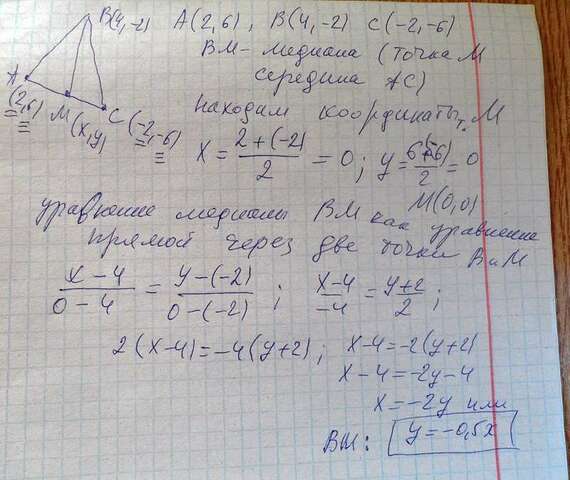 B(4,-2) A(2,6), B(4,-2) C(-2,-6)
BM - медиана (точка M
середина AC)
A
(2,6) M(x,y) C(-2,-6)
находим координаты т. M
x = (2+(-2))/2 = 0; y = (6+(-6))/2 = 0
M(0,0)
уравнение медианы BM как уравнение
прямой через две точки B и M
(x-4)/(0-4) = (y-(-2))/(0-(-2)); (x-4)/-4 = (y+2)/2;
2(x-4)=-4(y+2); x-4=-2(y+2)
x-4=-2y-4
x=-2y или
BM: y=-0,5x